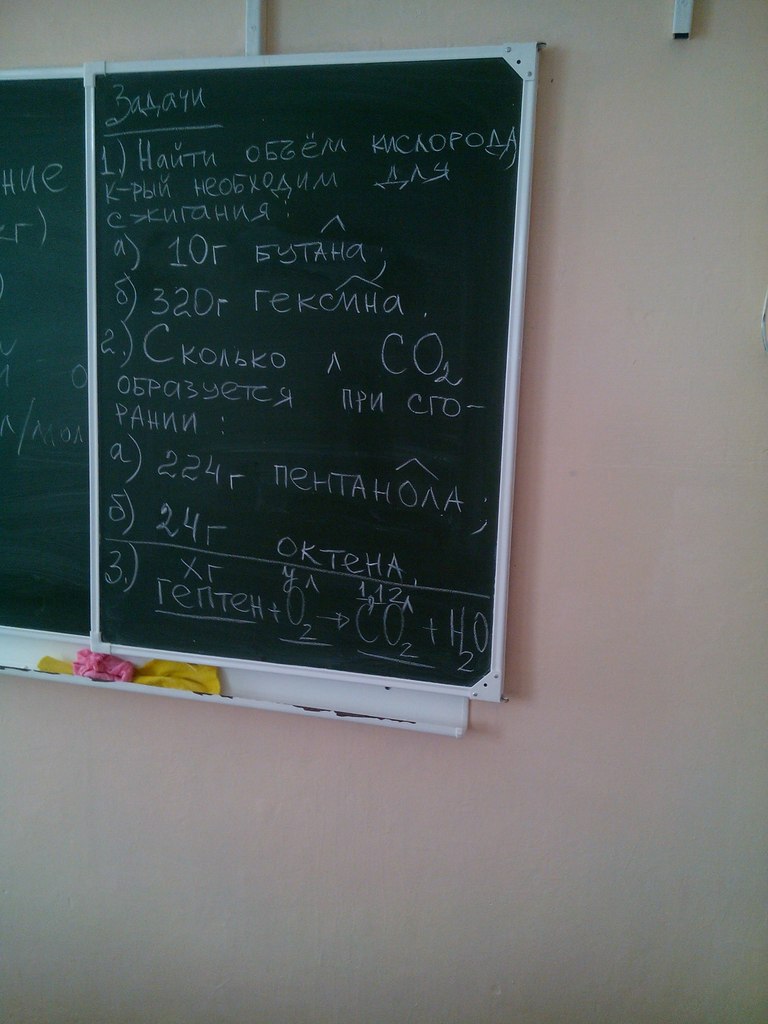 ние
Задачи
1) Найти объём кислорода,
к-рый необходим для
сжигания:
а) 10г бутана;
б) 320г гексина.
2.) Сколько л CO2
образуется при сго-
рании:
а) 224г пентанола;
б) 24г октена.
3.) xг yл 1,12л
гептен + O2 → CO2 + H2O